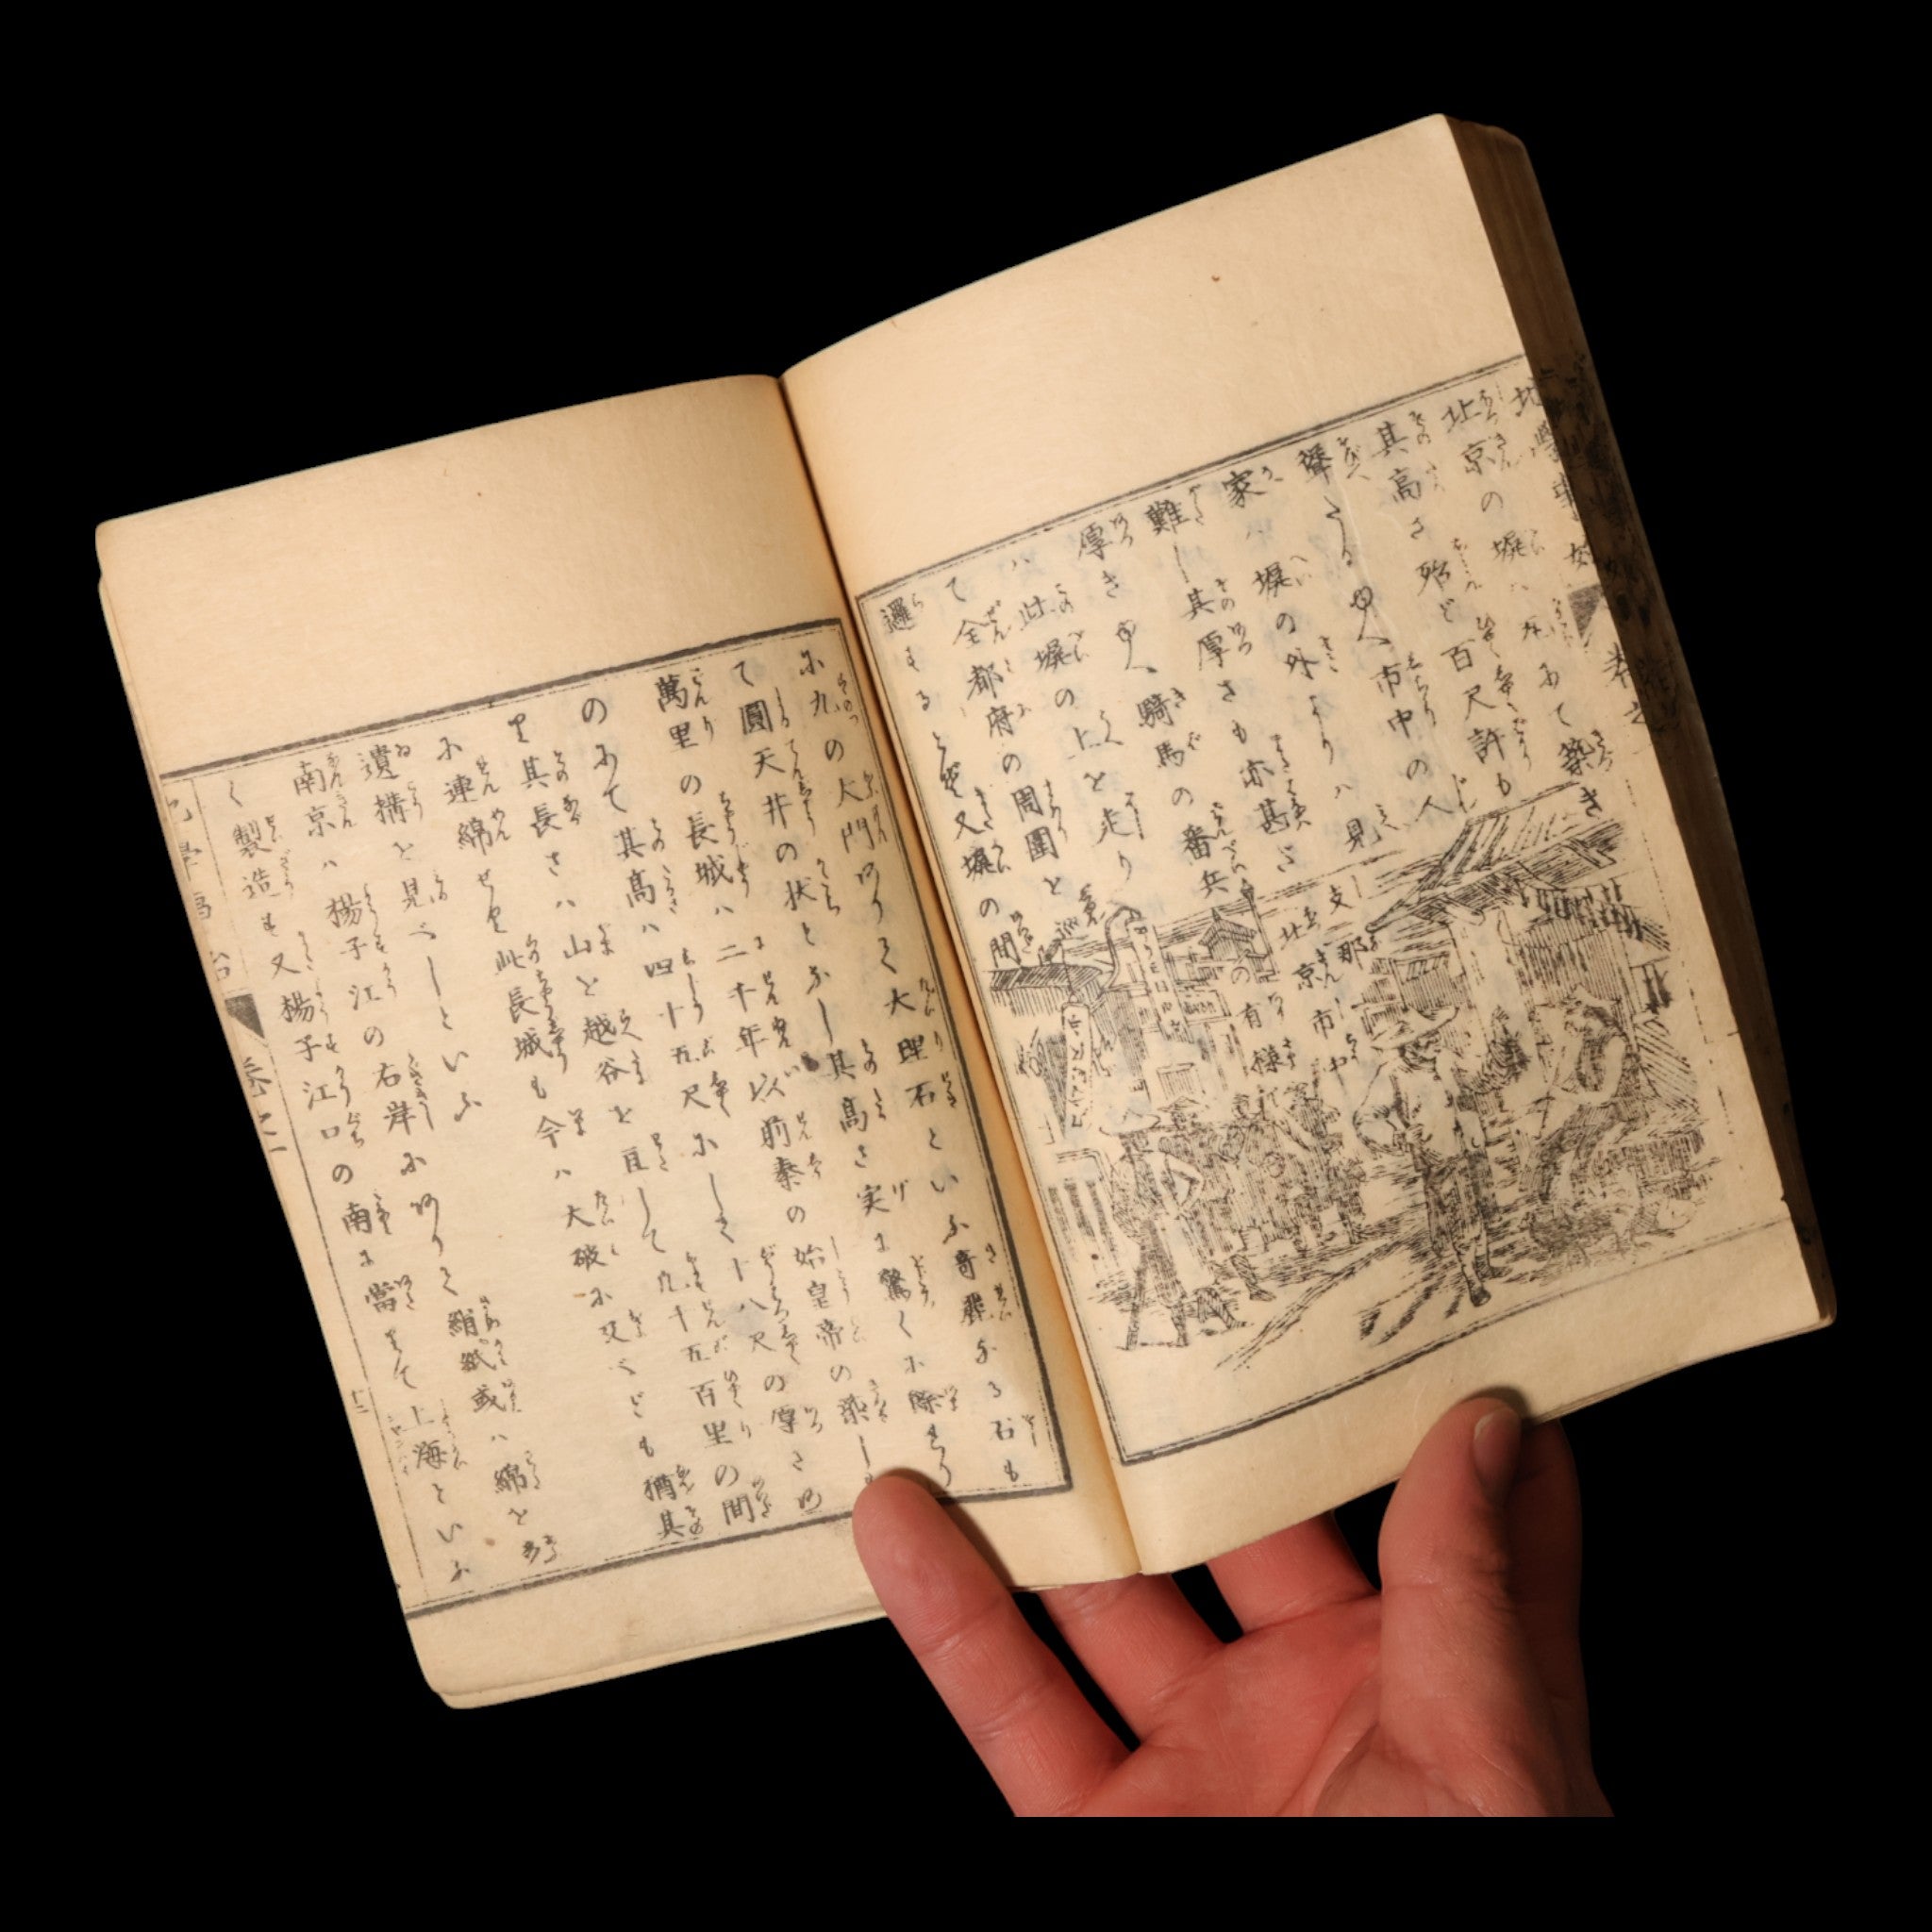 地學事始 巻之
北京の塀ハ瓦にて築き
其高さ殆ど百尺許も
聳たるゆへ市中の人
家ハ塀の外よりハ見
難し其厚さも亦甚だ
厚きゆへ騎馬の番兵
ハ此塀の上を走り
て全都府の周圍を巡
邏すると云又塀の間
支那
北京市中
の有様
に九の大門ありて大理石といふ奇麗なる石も
て圓天井の状となし其高さ実に驚くに餘あり
萬里の長城ハ二千年以前秦の始皇帝の築し
のにて其高ハ四十五尺にして十八尺の厚さあ
り其長さハ山を越谷を亘して九千五百里の間
に連綿せり此長城も今ハ大破に及べども猶其
遺構を見べしといふ
南京ハ揚子江の右岸にありて絹紙或ハ綿を多
く製造す又揚子江口の南に當りて上海といふ
巻之二 十二